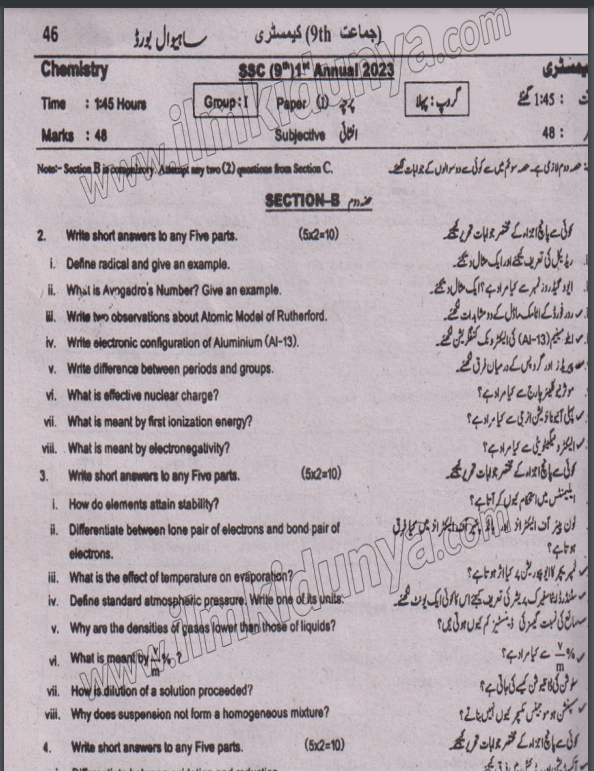 46 ساہیوال بورڈ (جماعت 9th) کیمسٹری
Chemistry SSC (9th) 1st Annual 2023 کیمسٹری
Time : 1:45 Hours Group : I Paper (I) پرچہ گروپ : پہلا 1:45 گھنٹے
Marks : 48 Subjective انشائی 48 :
Note:- Section B is compulsory. Attempt any two (2) questions from Section C.
SECTION–B حصہ دوم
2. Write short answers to any Five parts. (5x2=10) کوئی سے پانچ اجزاء کے مختصر جوابات تحریر کیجئے۔
i. Define radical and give an example. ریڈیکل کی تعریف کیجئے اور ایک مثال دیجئے۔
ii. What is Avogadro's Number? Give an example. ایووگیڈروز نمبر سے کیا مراد ہے؟ ایک مثال دیجئے۔
iii. Write two observations about Atomic Model of Rutherford. ردرفورڈ کے اٹامک ماڈل کے دو مشاہدات لکھئے۔
iv. Write electronic configuration of Aluminium (Al-13). ایلومینیم (Al-13) کی الیکٹرونک کنفگریشن لکھئے۔
v. Write difference between periods and groups. پیریڈز اور گروپس کے درمیان فرق لکھئے۔
vi. What is effective nuclear charge? موثر نیوکلیئر چارج سے کیا مراد ہے؟
vii. What is meant by first ionization energy? پہلی آئیونائزیشن انرجی سے کیا مراد ہے؟
viii. What is meant by electronegativity? الیکٹرونیگیٹیویٹی سے کیا مراد ہے؟
3. Write short answers to any Five parts. (5x2=10) کوئی سے پانچ اجزاء کے مختصر جوابات تحریر کیجئے۔
i. How do elements attain stability?
ii. Differentiate between lone pair of electrons and bond pair of
electrons. ہوتا ہے؟
iii. What is the effect of temperature on evaporation? ٹمپریچر کا ایوپوریشن پر کیا اثر ہوتا ہے؟
iv. Define standard atmospheric pressure. Write one of its units.
v. Why are the densities of gases lower than those of liquids?
vi. What is meant by v/m % ? v/m % سے کیا مراد ہے؟
vii. How is dilution of a solution proceeded? سلوشن کی ڈائلیوشن کیسے کی جاتی ہے؟
viii. Why does suspension not form a homogeneous mixture?
4. Write short answers to any Five parts. (5x2=10) کوئی سے پانچ اجزاء کے مختصر جوابات تحریر کیجئے۔
www.ilmkidunya.com
www.ilmkidunya.com